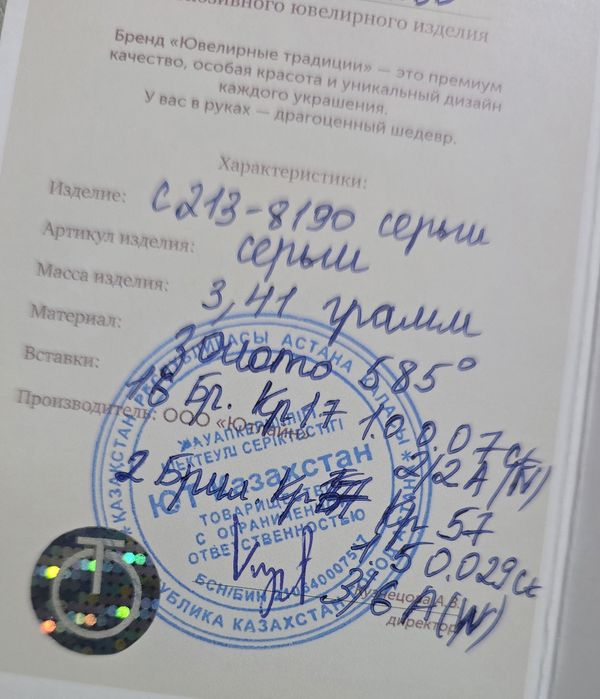 эксклюзивного ювелирного изделия
Бренд «Ювелирные традиции» — это премиум
качество, особая красота и уникальный дизайн
каждого украшения.
У вас в руках — драгоценный шедевр.
Характеристики:
Изделие: С213-8190 серьги
Артикул изделия: серьги
Масса изделия: 3,41 грамм
Материал: Золото 585°
Вставки: 16 Бр. Кр 17 1.00.07 ct
2/2 А (N)
Производитель: ООО «Ют Лайн»
2 Брил. Кр 57
1.50.029 ct
3/6 А (N)
ЖАУАПКЕРШІЛІГІ
ШЕКТЕУЛІ СЕРІКТЕСТІГІ
Ют Казахстан
ТОВАРИЩЕСТВО
С ОГРАНИЧЕННОЙ
ОТВЕТСТВЕННОСТЬЮ
БСН/БИН
ҚАЗАҚСТАН РЕСПУБЛИКАСЫ АСТАНА ҚАЛАСЫ
РЕСПУБЛИКА КАЗАХСТАН
Кузнецова А.В.
директор